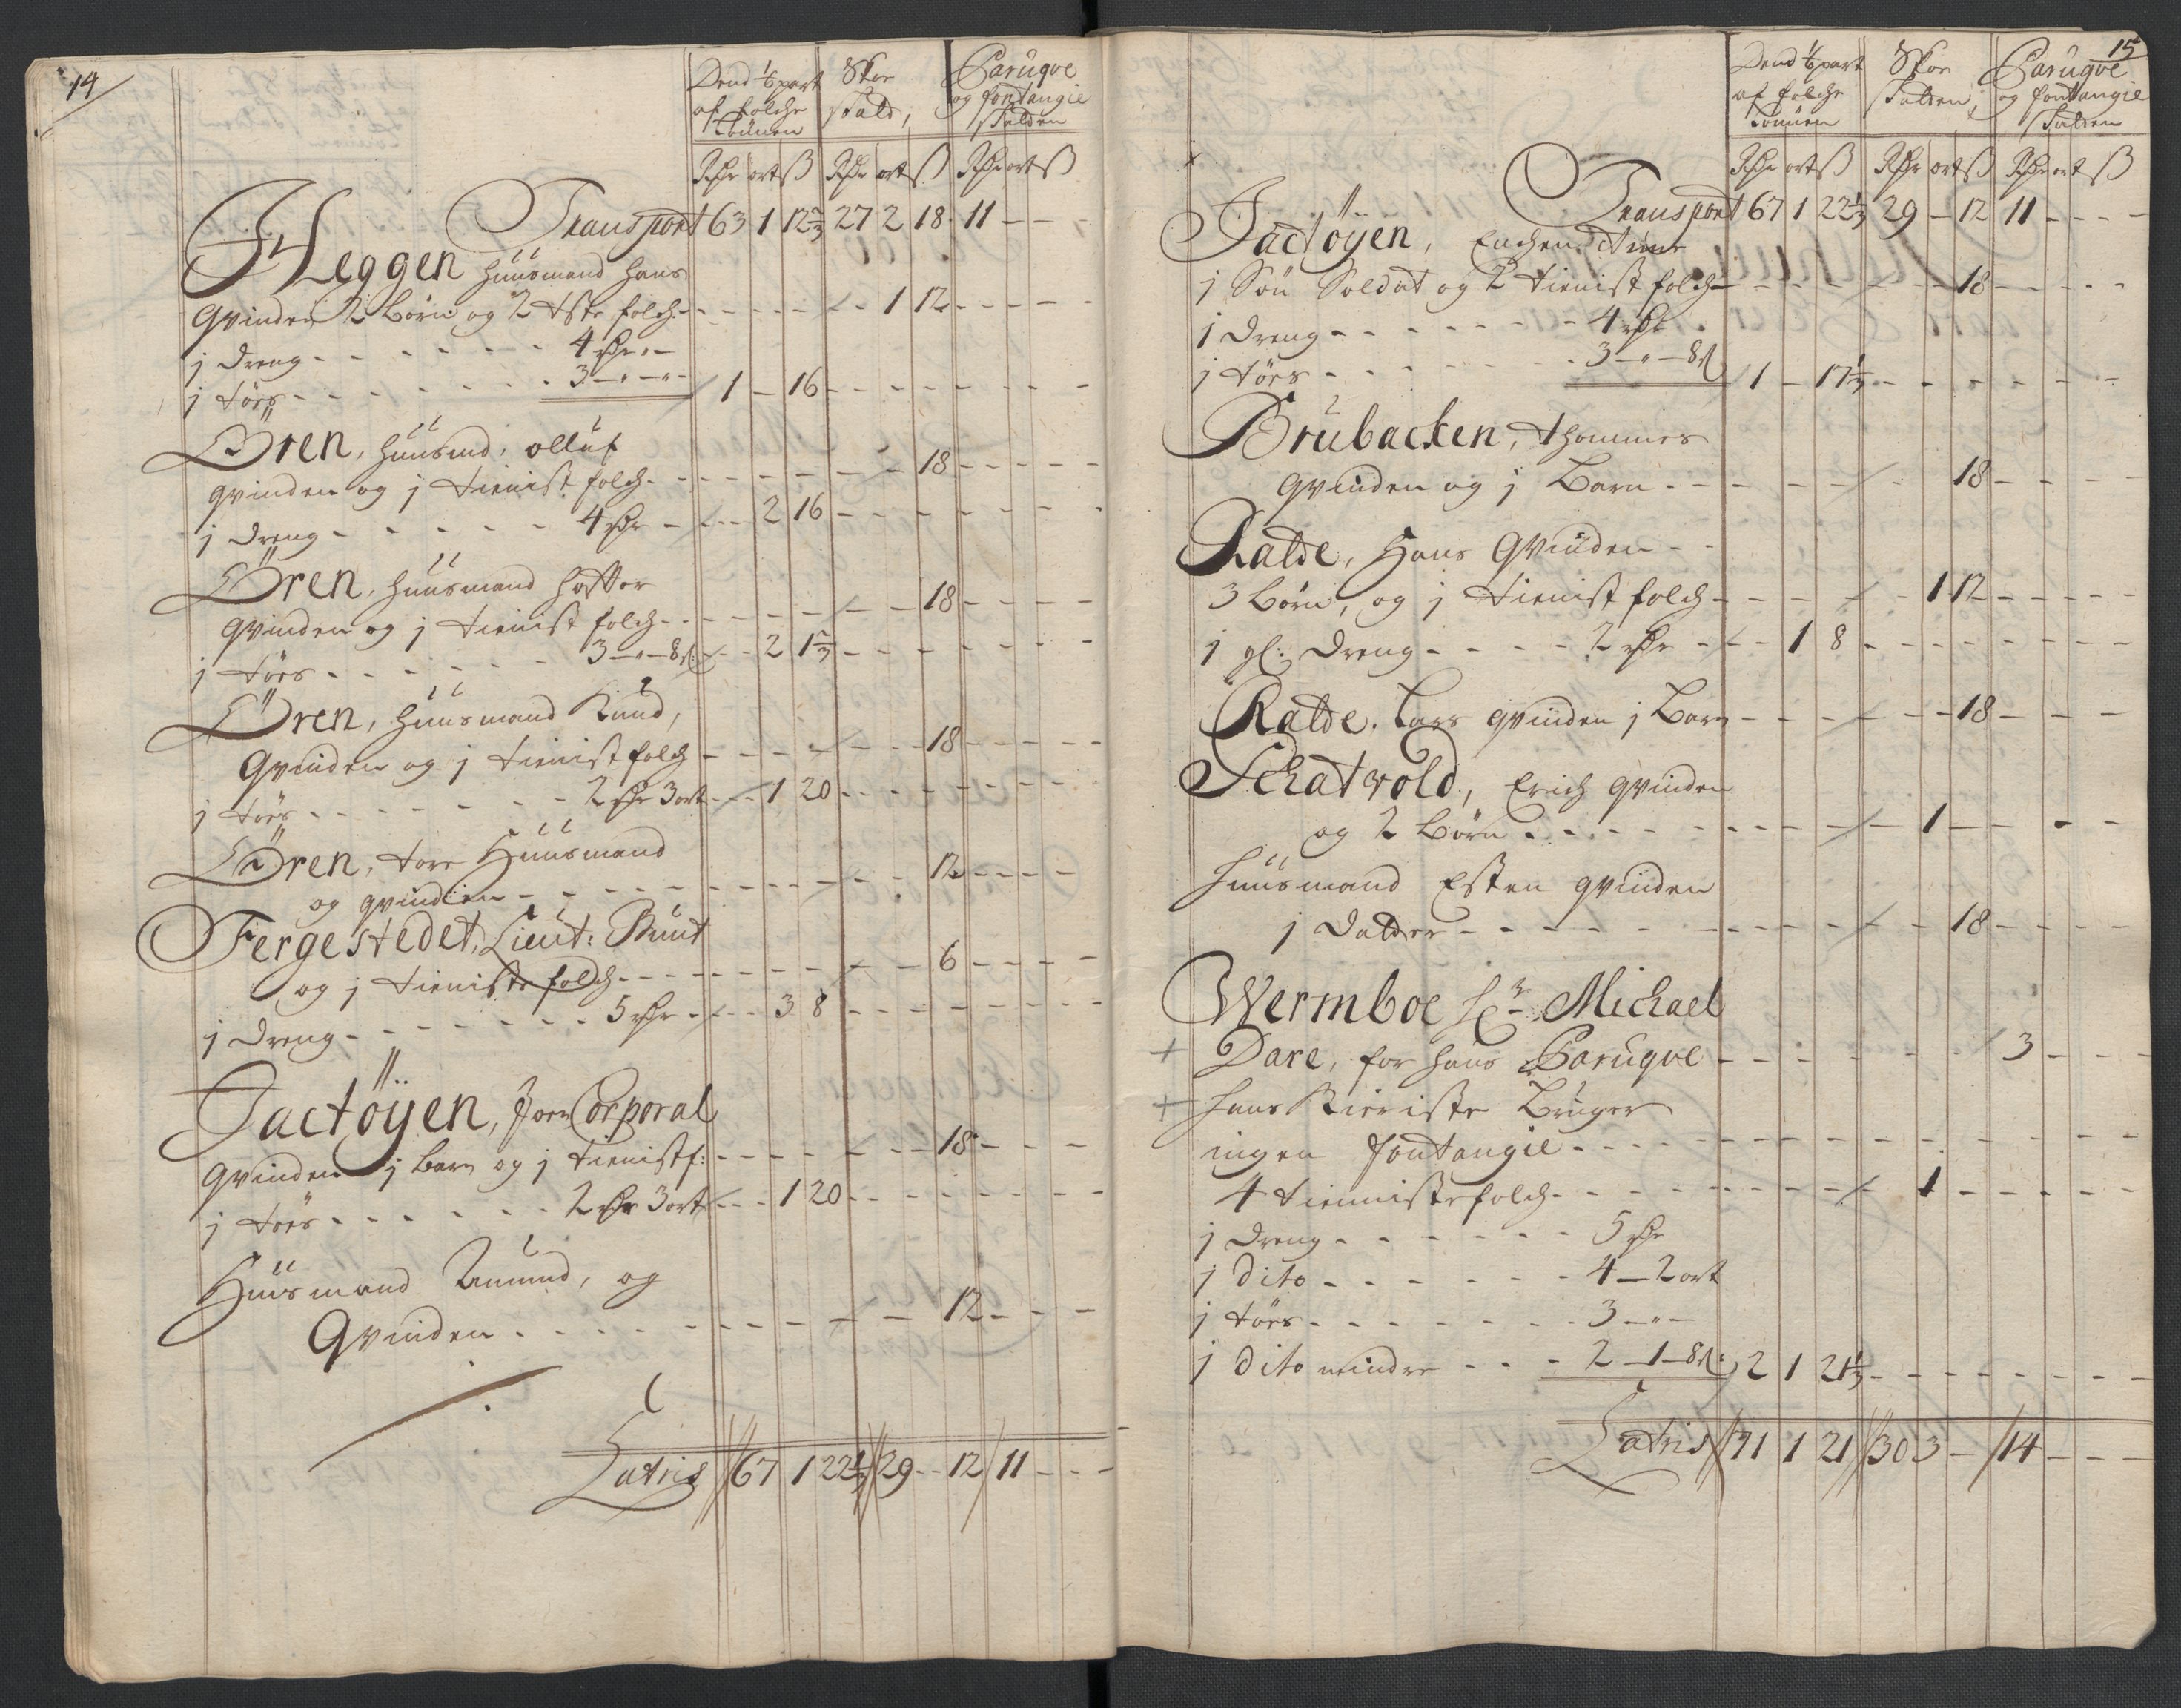 14
Dend 1/6 part af folche Lönnen | Skoe skatt, | Paruqve og fontangie skatten
Rdr ort ß | Rdr ort ß | Rdr ort ß
Transport 63 1 12 2/3 | 27 2 18 | 11 - -
Heggen huusmand hans
Qvinden 2 børn og 2 tste folch - - - 1 12 - - -
j dreng - - - 4 rdr - -
j töes - - - 3 - „ - „ - 1 - 16 - - -
Ören, huusmd, olluf
qvinden og j tienist folch - - - 18 - - -
j dreng - - - 4 rdr - - - 2 16 - - -
Ören, huusmand
qvinden og j tienist folch - - - 18 - - -
j töes - - - 3 - „ - 8 ß - - 2 1 2/3 - - -
Ören, huusmand Knud,
Qvinden og j tienist folch - - - 18 - - -
j töes - - - 2 rdr 3 ort - - 1 20 - - -
Ören, tore Huusmand
og qvinden - - - 12 - - -
Fergestedet, Lieut: Bunt
og j tieniste folch - - - 6 - - -
j dreng - - - 5 rdr - - - 3 8 - - -
Jactöyen, Joen Corporal
qvinden j barn og j tienistf: - - - 18 - - -
j töes - - - 2 rdr 3 ort - - 1 20 - - -
Huusmand Amund, og
Qvinden - - - 12 - - -
Latris 67 1 22 1/3 | 29 - 12 | 11 - - -
15
Dend 1/6 part af folche Lönnen | Skoe skatten, | Paruqve og fontangie skatten
Rdr ort ß | Rdr ort ß | Rdr ort ß
Transport 67 1 22 1/3 | 29 - 12 | 11 - - -
Jactöyen, Enchen
j Sön Soldat og 2 tienist folch - - - 18 - - -
j dreng - - - 4 rdr
j töes - - - 3 - „ - 8 ß 1 - 17 1/3 - - -
Brubacken, thommes
qvinden og j Barn - - - 18 - - -
Ratde, Hans Qvinden - -
3 börn, og j tienist folch - - - 1 12 - - -
1 gl: dreng - - - 2 rdr - - 1 8 - - -
Ratde. Lars qvinden j Barn - - - 18 - - -
Schatvold, Erich qvinden
og 2 börn - - - 1 - - -
Huusmand Esten qvinden
j datter - - - 18 - - -
Wermboe Hr Michael
+ Dare, for hans Paruqve - - - 3 - - -
+ hans Kieriste bruger
ingen fontangie - - -
4 tienniste folch - - - 1 - - -
j dreng - - - 5 rdr
j dito - - - 4 - 2 ort
j töes - - - 3 - „ -
j dito mindre - - - 2 - 1 - 8 ß: 2 1 21 1/3 - - -
Latris 71 1 21 | 30 3 - | 14 - - -